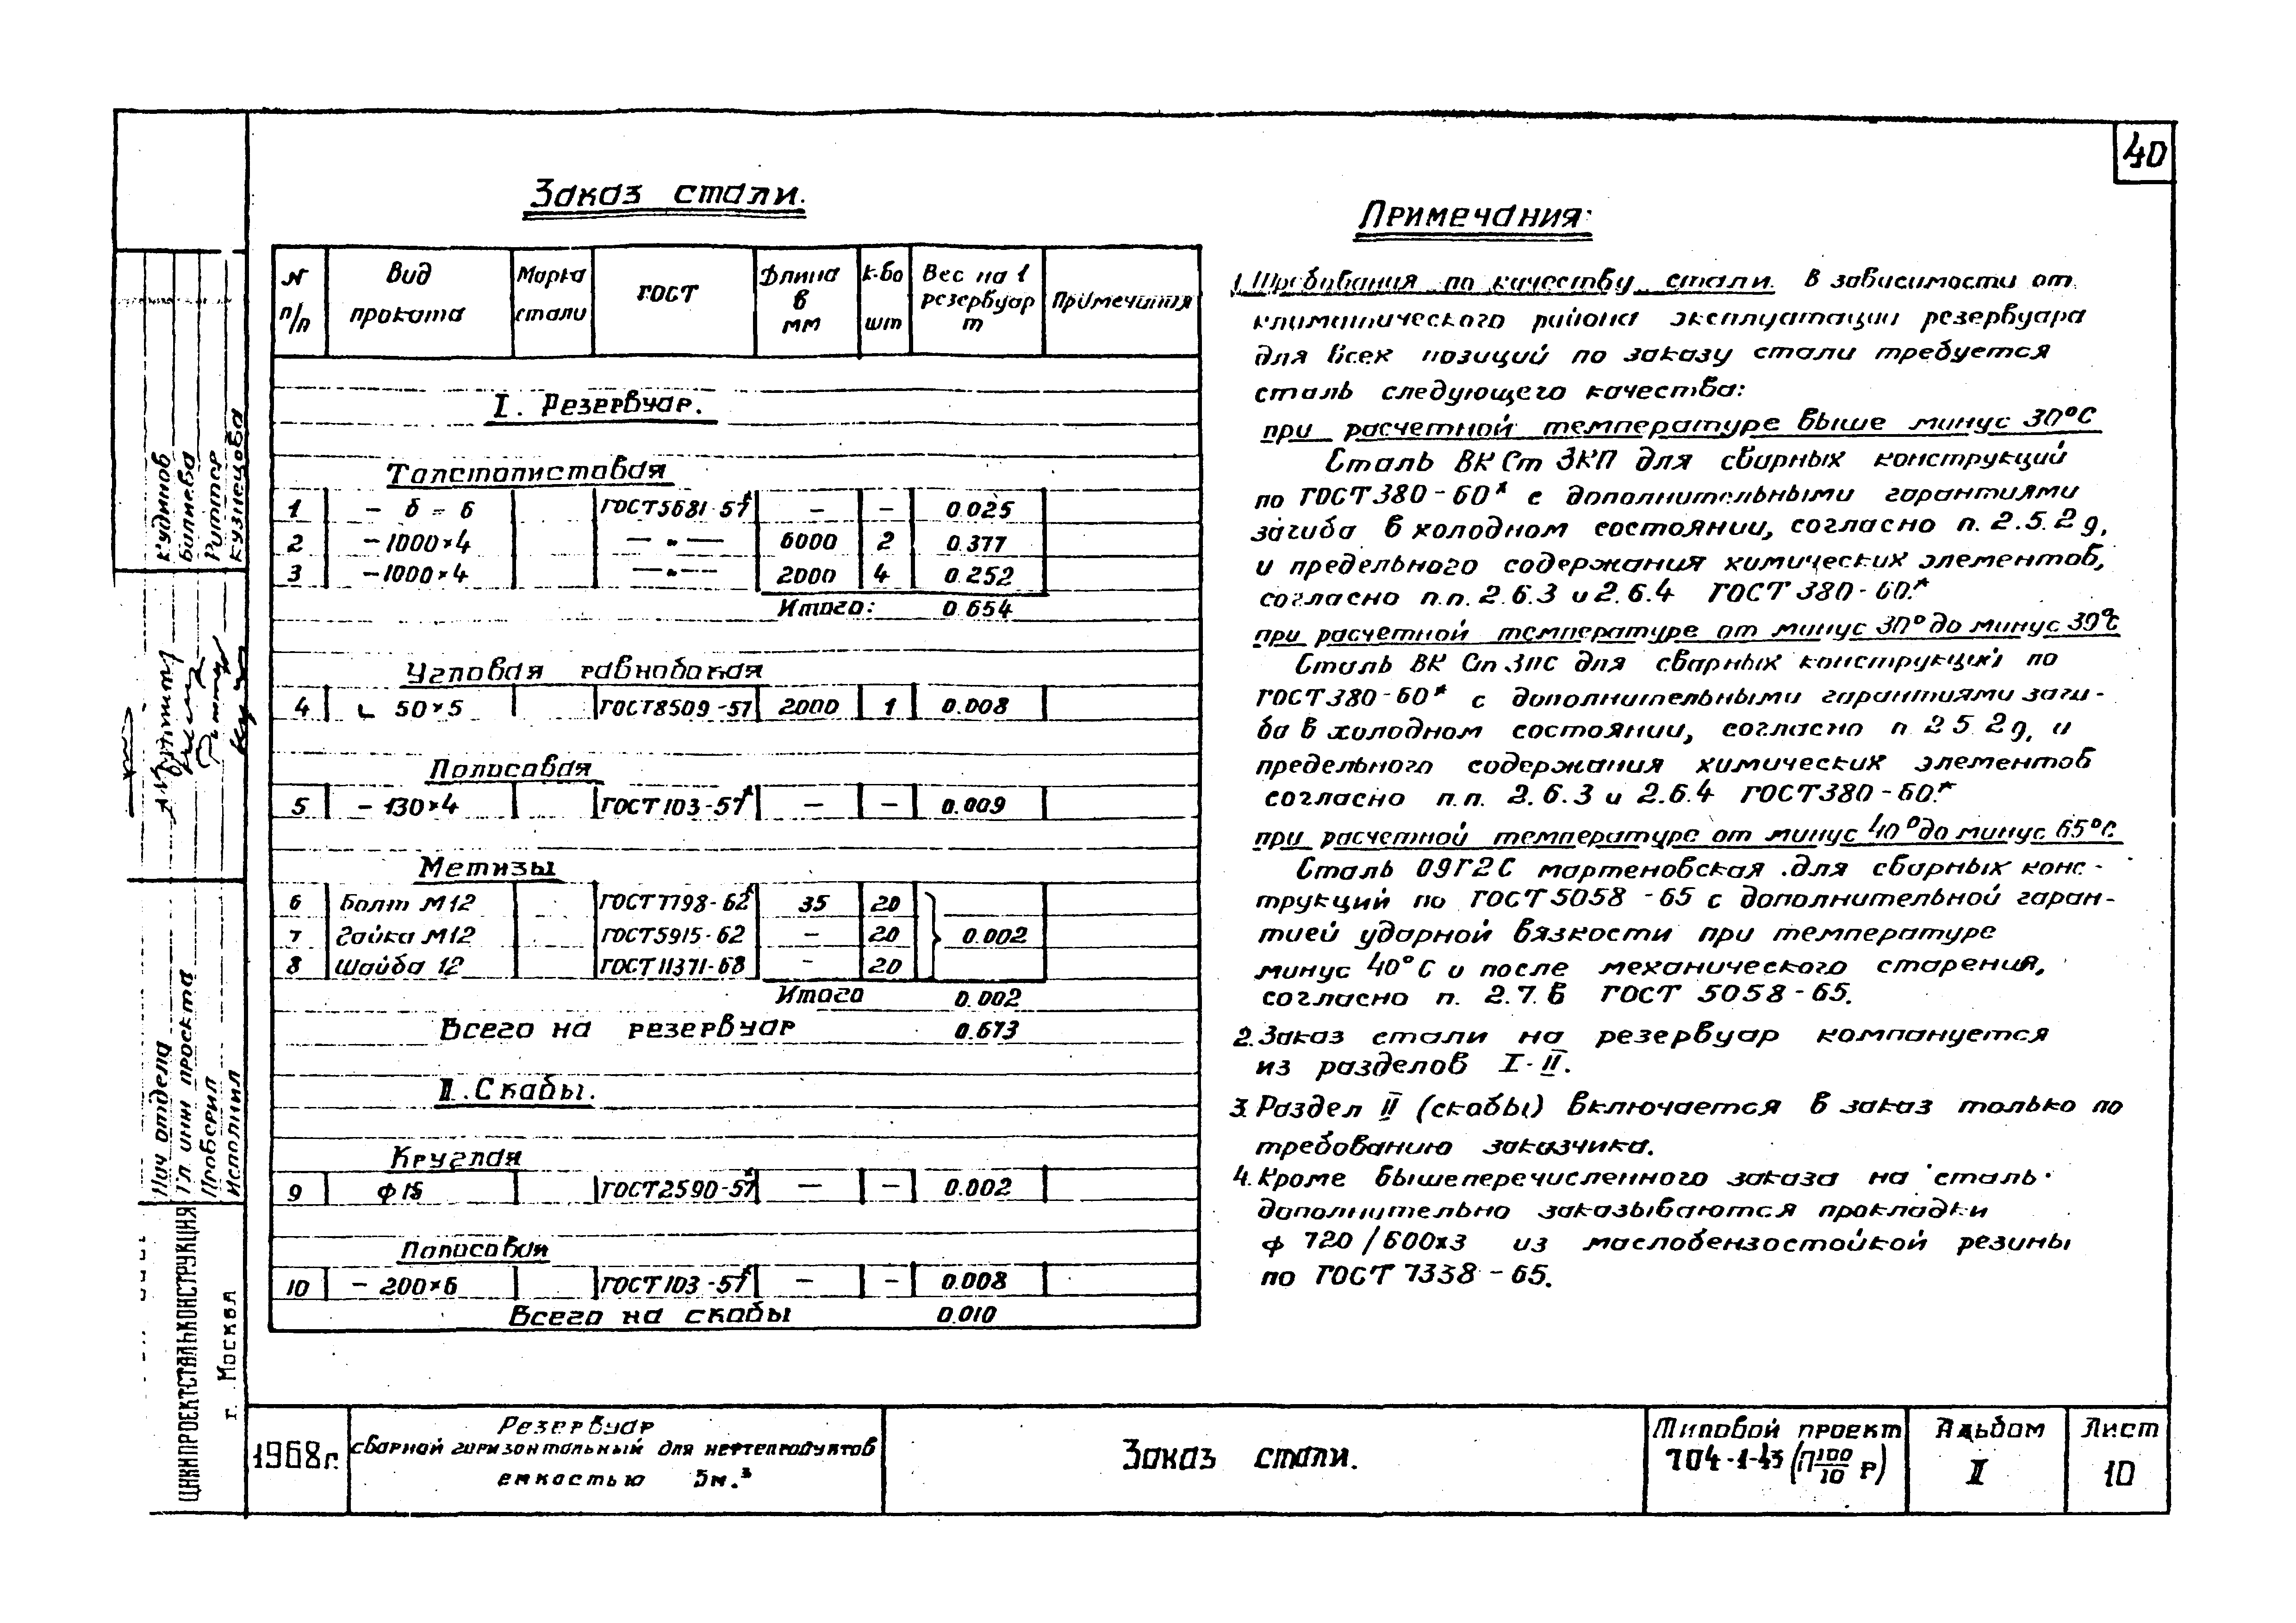 40
Заказ стали.
N п/п | Вид проката | Марка стали | ГОСТ | Длина в мм | к-во шт | Вес на 1 резервуар т | Примечания
I. Резервуар.
Толстолистовая
1 | – б = 6 | ГОСТ 5681-57* | – | – | 0.025
2 | – 1000×4 | —„— | 6000 | 2 | 0.377
3 | – 1000×4 | —„— | 2000 | 4 | 0.252
Итого: 0.654
Угловая равнобокая
4 | ∟ 50×5 | ГОСТ 8509-57 | 2000 | 1 | 0.008
Полосовая
5 | – 130×4 | ГОСТ 103-57* | – | – | 0.009
Метизы
6 | Болт М12 | ГОСТ 7798-62* | 35 | 20
7 | Гайка М12 | ГОСТ 5915-62 | – | 20 | 0.002
8 | Шайба 12 | ГОСТ 11371-68 | – | 20
Итого 0.002
Всего на резервуар 0.673
II. Скобы.
Круглая
9 | ф 16 | ГОСТ 2590-57* | – | – | 0.002
Полосовая
10 | – 200×6 | ГОСТ 103-57* | – | – | 0.008
Всего на скобы 0.010
Примечания:
1. Требования по качеству стали. В зависимости от
климатического района эксплуатации резервуара
для всех позиций по заказу стали требуется
сталь следующего качества:
при расчетной температуре выше минус 30°С
Сталь ВК Ст 3КП для сварных конструкций
по ГОСТ 380-60* с дополнительными гарантиями
загиба в холодном состоянии, согласно п. 2.5.2д,
и предельного содержания химических элементов,
согласно п.п. 2.6.3 и 2.6.4 ГОСТ 380-60.*
при расчетной температуре от минус 30° до минус 39°С
Сталь ВК Ст 3пс для сварных конструкций по
ГОСТ 380-60* с дополнительными гарантиями заги-
ба в холодном состоянии, согласно п 2 5 2д, и
предельного содержания химических элементов
согласно п.п. 2.6.3 и 2.6.4 ГОСТ 380-60.*
при расчетной температуре от минус 40° до минус 65°С.
Сталь 09Г2С мартеновская для сварных конс-
трукций по ГОСТ 5058-65 с дополнительной гаран-
тией ударной вязкости при температуре
минус 40°С и после механического старения,
согласно п. 2.7.в ГОСТ 5058-65.
2. Заказ стали на резервуар компануется
из разделов I-II.
3. Раздел II (скобы) включается в заказ только по
требованию заказчика.
4. Кроме вышеперечисленного заказа на сталь
дополнительно заказываются прокладки
ф 720/600×3 из маслобензостойкой резины
по ГОСТ 7338-65.
Кудинов
Валиева
Риттер
Кузнецова
Нач отдела
Гл. инж проекта
Проверил
Исполнил
ЦНИИПРОЕКТСТАЛЬКОНСТРУКЦИЯ
г. Москва
1968г.
Резервуар
сварной горизонтальный для нефтепродуктов
емкостью 5м.³
Заказ стали.
Типовой проект
704-1-43 (П100/10 Р)
Альбом
II
Лист
10